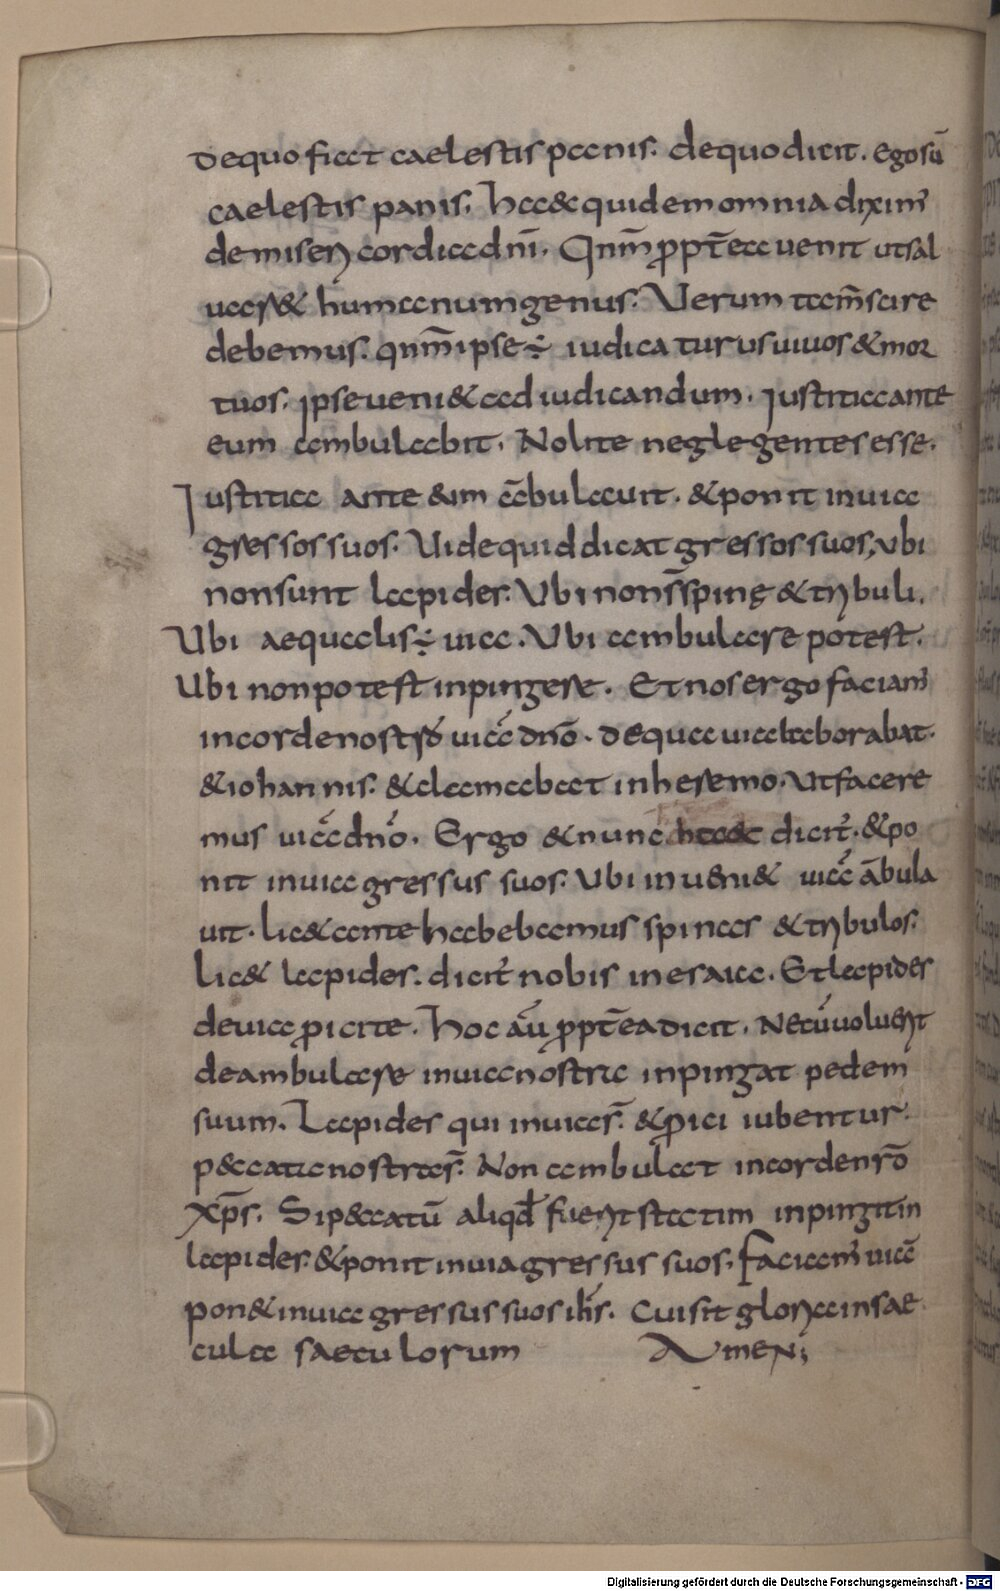 de quo fiat caelestis panis. de quo dicit. ego sū
caelestis panis. Haec quidem omnia diximꝰ
de misericordia dn̄i. Qnm̄ ꝓpt̄ea uenit ut sal
uaret humanum genus. Uerum tam̄ scire
debemus. qnm̄ ipse ÷ iudicaturus uiuos & mor
tuos. ipse ueni& ad iudicandum. Iustitia ante
eum ambulabit. Nolite neglegentes esse.
Iustitia ante eum ābulauit. & ponit in uia
gressos suos. Uide quid dicat gressos suos, ubi
non sunt lapides. Ubi non s̄ spinę & tribuli.
Ubi aequalis ÷ uia. Ubi ambulare potest.
Ubi non potest inpingere. Et nos ergo faciamꝰ
in corde nostro uiā dn̄o. de qua uia laborabat
& iohannis. & clamabat in heremo. Ut facere
mus uiā dn̄o. Ergo & nunc haec dicit. & po
nit in uia gressus suos. Ubi inueni& uiā ābula
uit. Lic& ante habebamus spinas & tribulos.
Lic& lapides. dicit nobis in esaia. Et lapides
de uia ꝓicite. Hoc aū ꝓpt̄ea dicit. Ne cū uoluerit
deambulare in uia nostra inpingat pedem
suum. Lapides qui in uia s̄. & ꝓici iubentur.
p&cata nostra s̄. Non ambulat in corde nr̄o
xp̄s. Si p&catū aliqd̄ fuerit statim inpingit in
lapides. & ponit in uia gressus suos. Faciamꝰ uiā
pon& in uia gressus suos ih̄s. Cui sit gloria in sae
cula saeculorum Amen;
Digitalisierung gefördert durch die Deutsche Forschungsgemeinschaft - DFG